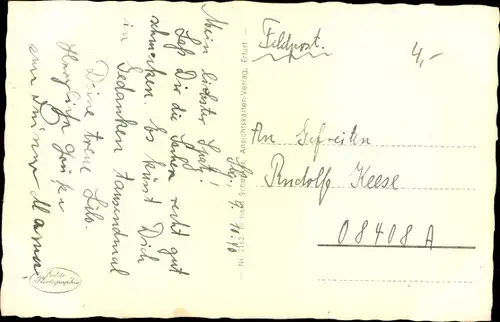 Feldpost.
4,-
An Gefreiten
Rudolf Keese
08408A
9. 10. 40
Mein liebster Spatz!
Laß Dir die Sachen recht gut
schmecken. Es küsst Dich
in Gedanken tausendmal
Deine treue Lilo.
Herzliche Grüße
Mama
Ansichtskarten-Verlag, Erfurt
Echte
Photographie